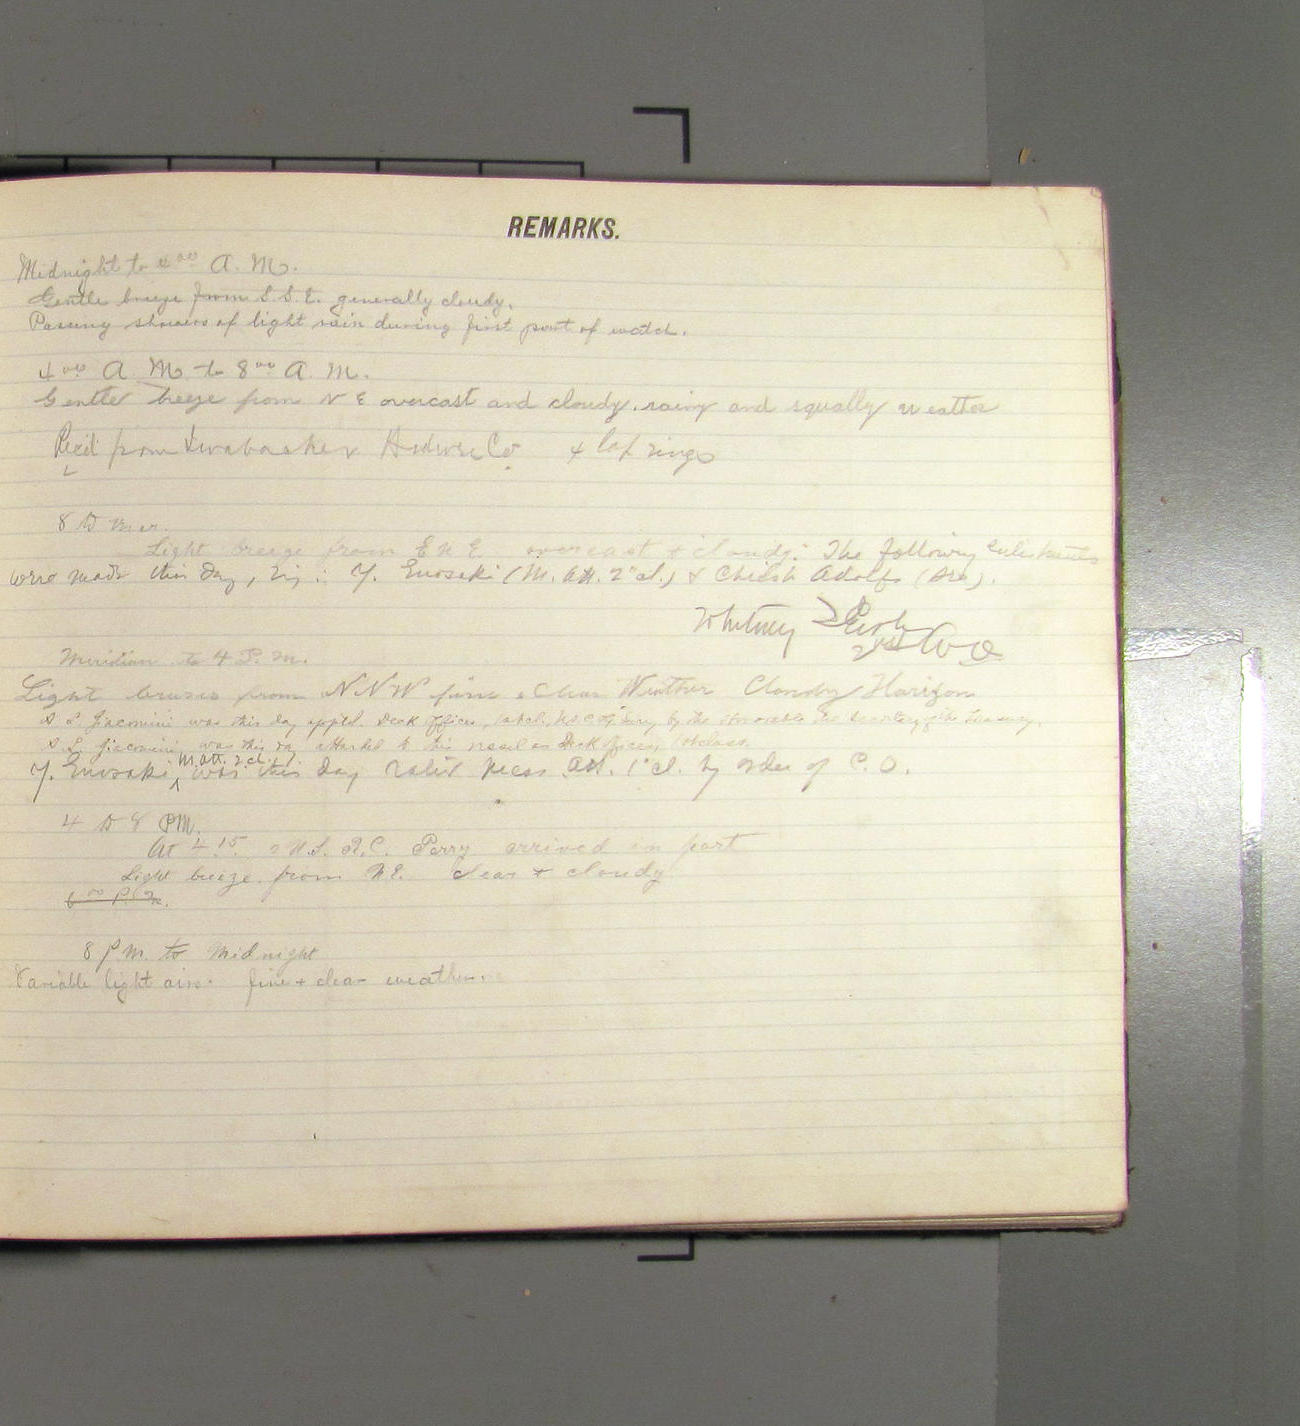 REMARKS.
Midnight to 4 00 A. M.
Gentle breeze from S. S. E. generally cloudy.
Passing showers of light rain during first part of watch.
4 00 A. M. to 8 00 A. M.
Gentle breeze from N E overcast and cloudy, rainy and squally weather
Rec'd from Hdwre Co. 4 lap rings
8 to mer.
Light breeze from E N E overcast + cloudy. The following enlistments
were made this day, viz: Y. Enosaki (M. Att. 2" cl.) & Adolfo
Whitney
Meridian to 4 P. M.
Light breezes from N N W fine & Clear Weather Cloudy Horizon
S. L. Giacomini was this day app'td. Deck Officer, by the Honorable the Secretary of the Treasury.
S. L. Giacomini, was this day attached to this vessel as Deck Officer, 1st class.
Y. Enosaki, M. Att. 2 cl. was this day rated Mess Att. 1" cl. by order of C. O.
4 to 8 PM.
At 4.15 U. S. R. C. Perry arrived in port
Light breeze from N. E. clear + cloudy
6 00 P. M.
8 P. M. to Midnight
Variable light airs. fine + clear weather.